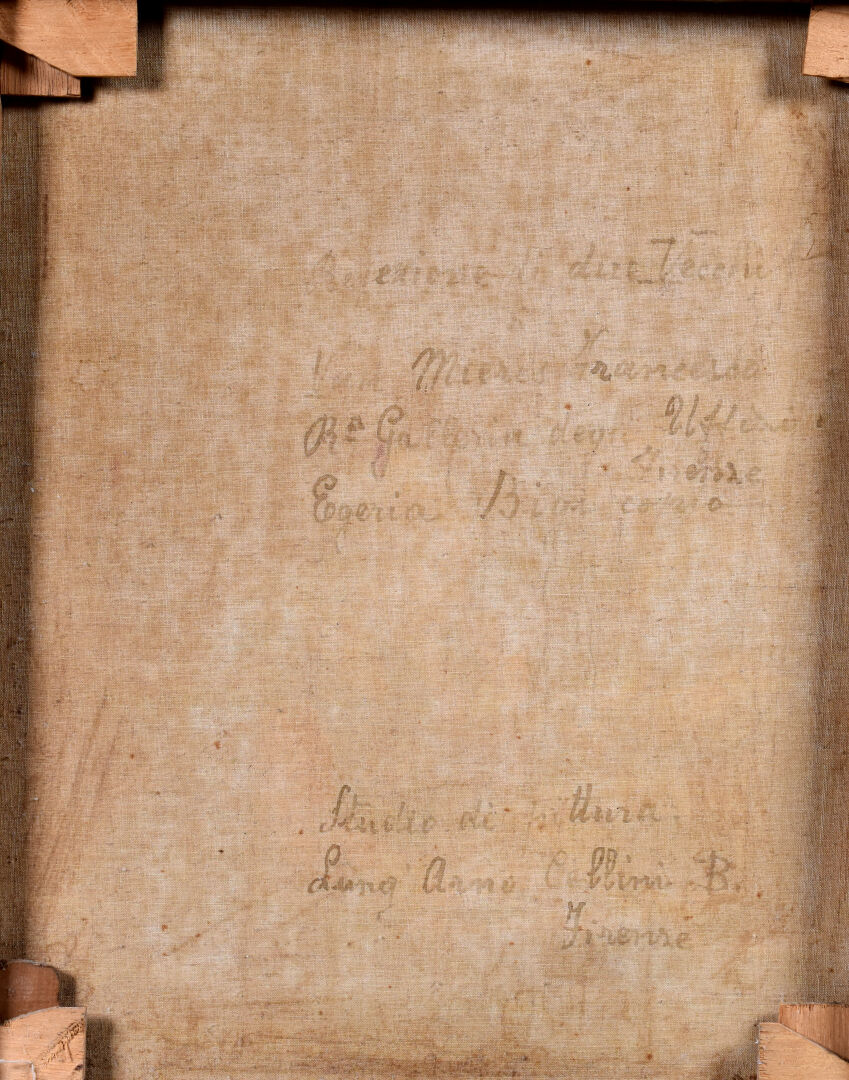 Refezione di due Vecchi
Van Mieris Francesco
Ra Galleria degli Uffizi
Firenze
Egeria copio
Studio di pittura
Lung' Arno Cellini
Firenze